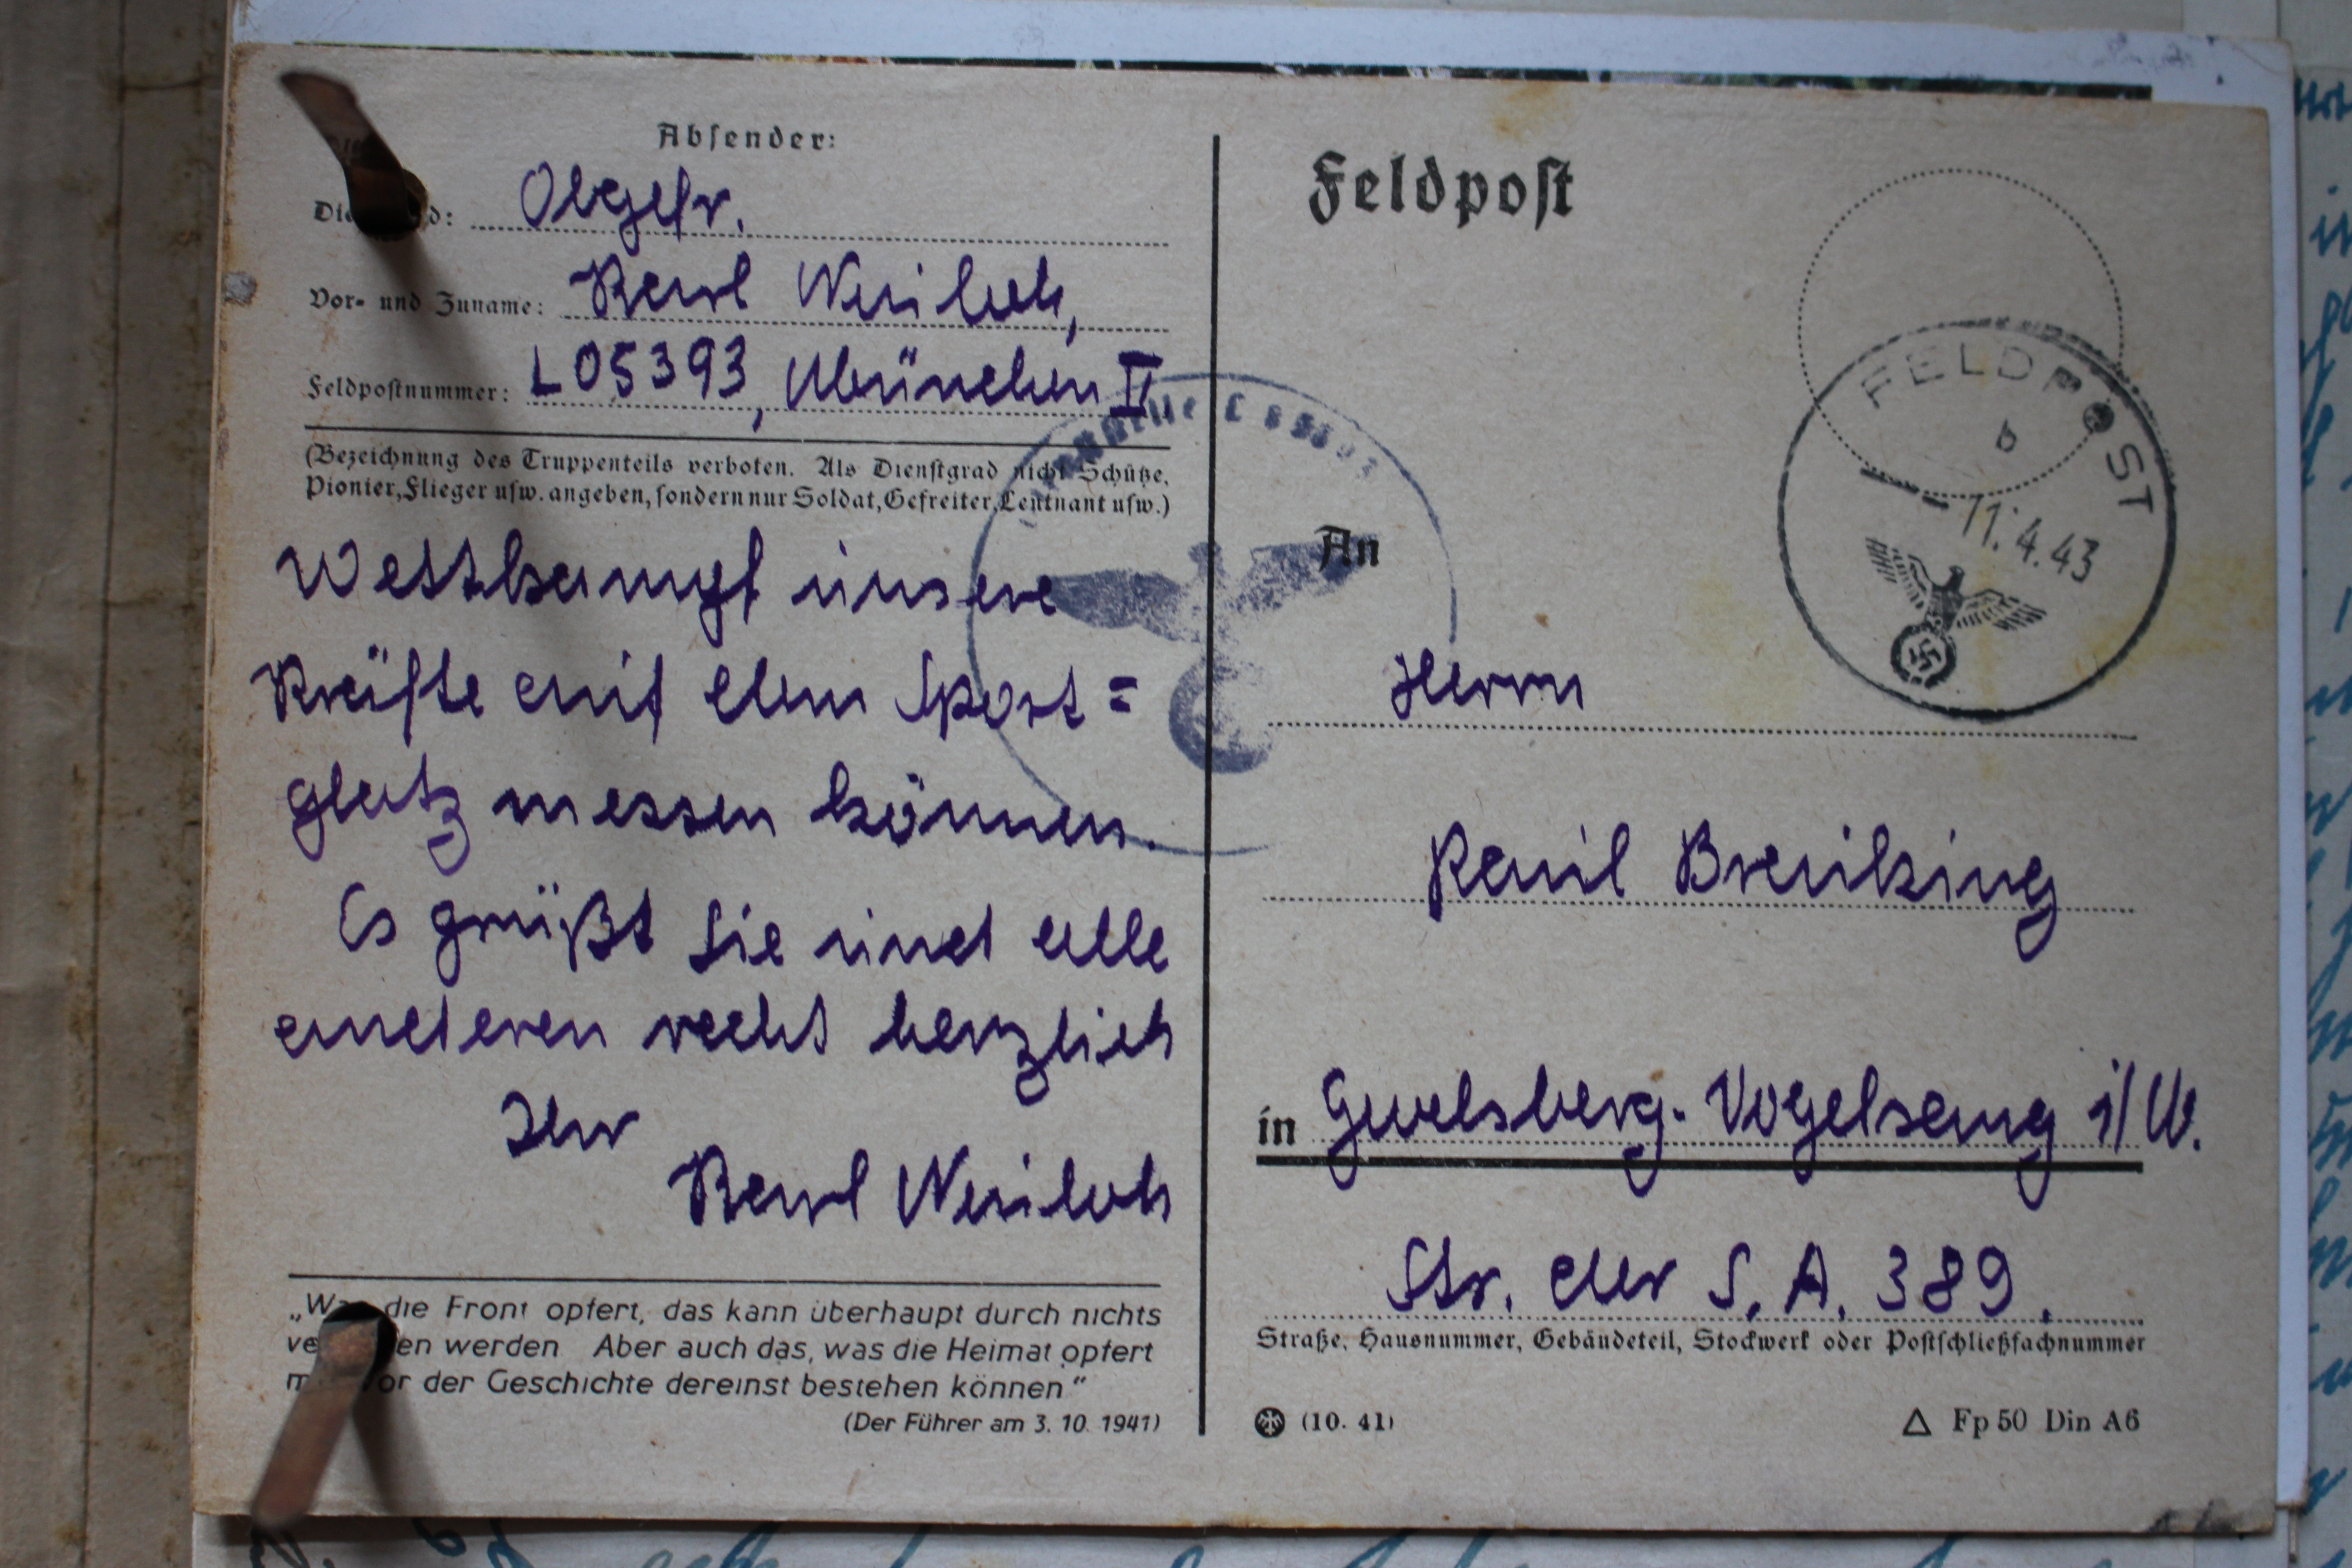 Absender:
Obgefr.
Vor- und Zuname: Karl Weiloh,
Feldpostnummer: L 05393, München II
(Bezeichnung des Truppenteils verboten. Als Dienstgrad nicht Schütze,
Pionier, Flieger usw. angeben, sondern nur Soldat, Gefreiter, Leutnant usw.)
Wettkampf unsere
Kräfte auf dem Sport=
platz messen können.
Es grüßt Sie und alle
anderen recht herzlich
Ihr
Karl Weiloh
die Front opfert, das kann überhaupt durch nichts
werden Aber auch das, was die Heimat opfert
der Geschichte dereinst bestehen können“
(Der Führer am 3. 10. 1941)
Feldpost
FELDPOST
b
11.4.43
An
Herrn
Paul Breuking
in Gevelsberg-Vogelsang i/W.
Str. der S.A. 389.
Straße, Hausnummer, Gebäudeteil, Stockwerk oder Postschließfachnummer
(10. 41)
Fp 50 Din A6